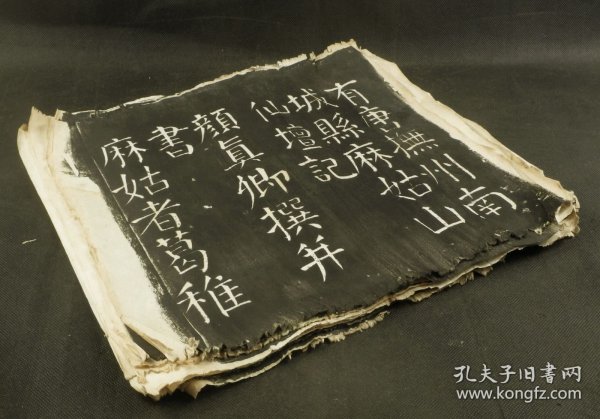 有唐撫州南
城縣麻姑山
仙壇記
顏眞卿撰并
書
麻姑者葛稚
孔夫子旧書网
www.kongfz.com